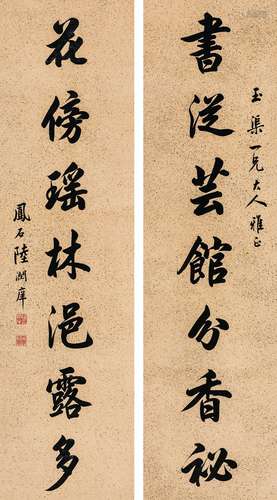 書從芸館分香祕
玉渠一兄大人雅正
花傍瑤林浥露多
鳳石陸潤庠